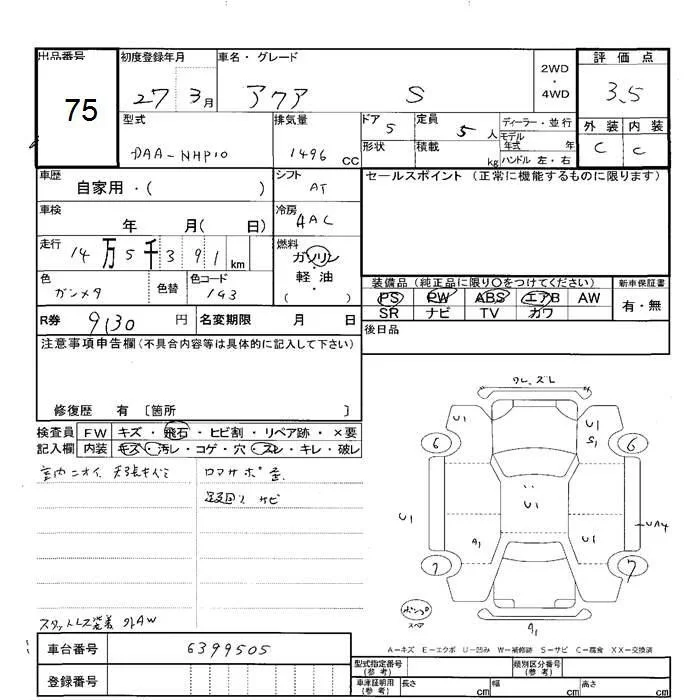 出品番号 初度登録年月 車名・グレード 2WD ・ 4WD 評価点
75 27 3月 アクア S 3.5
型式 排気量 ドア 5 定員 5人 ディーラー・並行 外装 内装
DAA-NHP10 1496 CC 形状 積載 kg モデル年式 年 C C
ハンドル 左・右
車歴 シフト セールスポイント (正常に機能するものに限ります)
自家用・( ) AT
車検 年 月( 日) 冷房 AAC
走行 14万5千391km 燃料 ガソリン・軽油・( )
色 ガンメタ 色替 色コード 1G3
装備品 (純正品に限り○をつけてください) 新車保証書
PS PW ABS エアB AW 有・無
SR ナビ TV カワ
R券 9130 円 名変期限 月 日
後日品
注意事項申告欄 (不具合内容等は具体的に記入して下さい)
修復歴 有 [箇所 ]
検査員 FW キズ・飛石・ヒビ割・リペア跡・×要
記入欄 内装 キズ・汚レ・コゲ・穴・スレ・キレ・破レ
室内ニオイ
足回リ サビ
ワレ、ズレ
U1 U1
S1
6 6
U1
U1 U1 UA4
A1
7 7
A1
スタットレス装着 外AW
A=キズ E=エクボ U=凹み W=補修跡 S=サビ C=腐食 XX=交換済
車台番号 6399505
登録番号
型式指定番号 (参考) 類別区分番号 (参考)
車庫証明用 (参考) 長さ cm 幅 cm 高さ cm